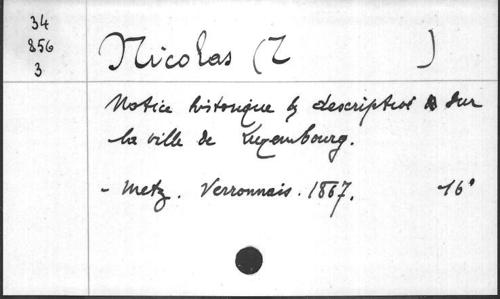 34
856
3
Nicolas (I )
Notice historique & descriptive sur
la ville de Luxembourg.
- Metz. Verronnais. 1867. 16°